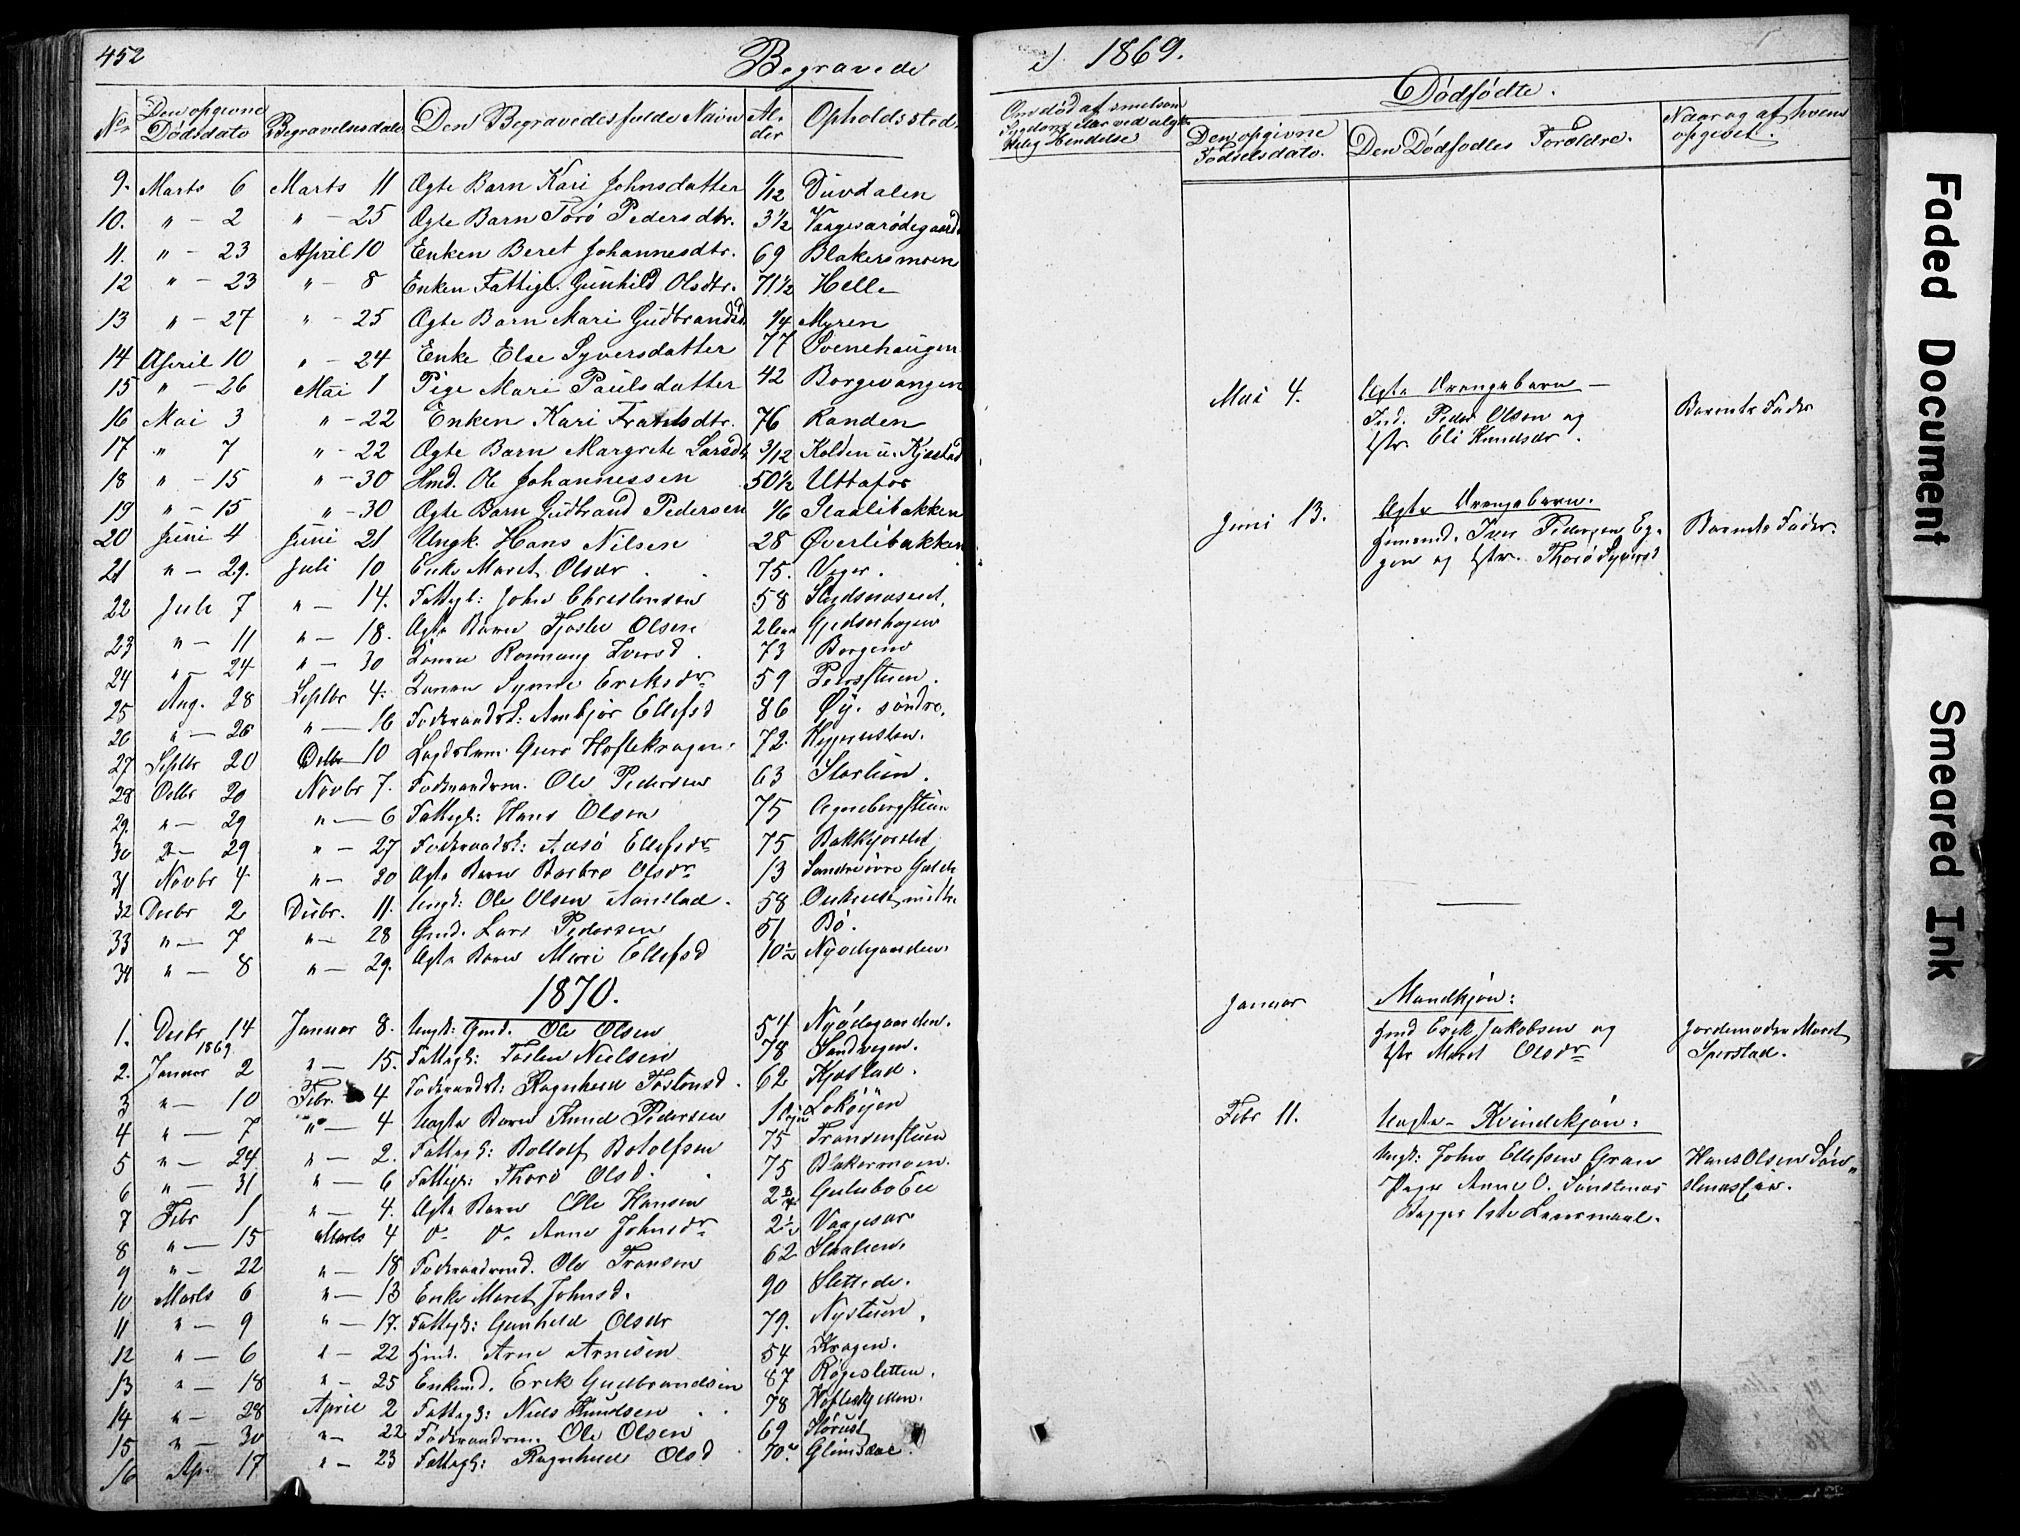 452
Begravede
i 1869.
No. Den opgivne Dødsdato Begravelsesdato Den Begravedes fulde Navn Alder Opholdssted.
Om død af smitsom Sygdom eller ved ulykkelig Hendelse
Dødfødte.
Den opgivne Fødselsdato. Den Dødfødtes Forældre. Naar og af hvem opgivet.
9. Marts 6 Marts 11 Ægte Barn Kari Johnsdatter 1/12 Duvdalen
10. " - 2 " - 25 Ægte Barn Torø Pedersdtr. 3 1/2 Vaagesarødegaard
11. " - 23 April 10 Enken Beret Johannesdtr. 69 Blakersmoen
12 " - 23 " - 8 Enken Fattigl. Gunhild Olsdtr. 71 1/2 Helle
13 " - 27 " - 25 Ægte Barn Mari Gudbrandsd 1/4 Myren
14 April 10 " - 24 Enke Else Syversdatter 77 Svenehaugen
15 " - 26 Mai 1 Pige Mari Paulsdatter 42 Borgevangen
16 Mai 3 " - 22 Enken Kari Fransdtr. 76 Randen
17 " 7 " - 22 Ægte Barn Margrete Larsdt 3/12 Kolden u. Kjøstad
18 " - 15 " - 30 Hmd. Ole Johannessen 50 1/2 Uttafor
19 " - 15 " - 30 Ægte Barn Gudbrand Pedersen 1/6 Staalibakken
20 Juni 4 Juni 21 Ungk. Hans Nilsen 28 Øverlibakken
21 " - 29. Juli 10 Enke Maret Olsdr. 75. Veger.
22 Juli 7 " - 14. Fattigl: John Christensen 58
23 " - 11 " - 18. Ægte Barn Olsen
24 " - 24 " - 30 Ronnaug Iversd. 73 Borgens
25 Aug. 28 Septbr 4. Synne Eriksdr 59
26 " - 26 " - 16 Føderaadsk: Ambjør Ellefsd 86 Øy. søndre.
27 Septbr 20 Octbr 10 Guro Høftekragen. 72.
28 Octbr 20 Novbr 7. Føderaadsm. Ole Pedersen 63
29. " - 29 " - 6 Fattigl: Hans Olsen 75
30 " - 29 " - 27 Føderaadsk: Aasø Ellefsdr 75 Bakkjordet
31 Novbr 4 " - 20 Ægte Barn Barbro Olsdr 13
32 Decbr 2 Decbr. 11. Ungk: Ole Olsen Aanstad. 58
33 " - 7 " - 28 Gmd. Lars Pedersen 51 Bø.
34 " - 8 " - 29. Ægte Barn Mari Ellefsd 10 1/2 Nyødegaarden.
1870.
1. Decbr 14 1869 Januar 8. Ungk: Gmd. Ole Olsen 54 Nyødegaarden.
2. Januar 2 " - 15. Fattigl: Tosten Nielsen 78 Sandvegen.
3 " - 10 Febr. 4 Føderaadsk: Ragnhild Tostensd. 62 Kjøstad.
4 " - 7 " - 4 Uægte Barn Knud Pedersen Løkøyen
5 " - 24 " - 2. Fattigl: Rollolf Botolfsen 75 Fransenstuen
6 " - 31 " - 6 Fattigl: Thorø Olsd. 75 Blakermoen.
7 Febr 1 " - 4. Ægte Barn Ole Hansen
8 " - 15 Marts 4 Anne Johnsdr 2 1/2 Vaagesar
9 " - 22 " - 18 Føderaadsmd. Ole Fransen 62 Staalsen.
10 Marts 6 " - 13 Enke Maret Johnsd. 90 Slettede.
11 " - 9 " - 17. Fattigl: Gunhild Olsdr 79. Nystuen.
12 " - 6 " - 22 Gmd. Arne Arnesen 54 Kragen.
13 " - 18 " - 25 Enkemd. Erik Gudbrandsen 87 Røgesletten.
14 " - 28 April 2 Fattigl: Niels Knudsen 78
15 " - 30 " - 22 Føderaadsm. Ole Olsen 69 Hørust
16 Ap. 17 " - 23 Fattigl: Ragnhild Olsd 70. Glimsdal.
Mai 4. Ægte Drengebarn -
Ind. Peder Olsen og
Hstr. Eli Knudsdr. Barnets Fader
Juni 13. Ægte Drengebarn.
Gmand. Iver Pedersen Eg-
gen og Hstr. Thorø Syversd Barnets Fader.
Januar Mandkjøn:
Gmd Erik Jakobsen og
Hstr Maret Olsdr Jordemoder Maret Sperstad.
Febr 11. Uægte - Kvindekjøn:
Ungk: John Ellefsen Gran
Pige Anne O. Sønstenes
Begges 1ste Leiermaal. Hans Olsen Søn-
stenes Eie.
Faded Document
Smeared Ink